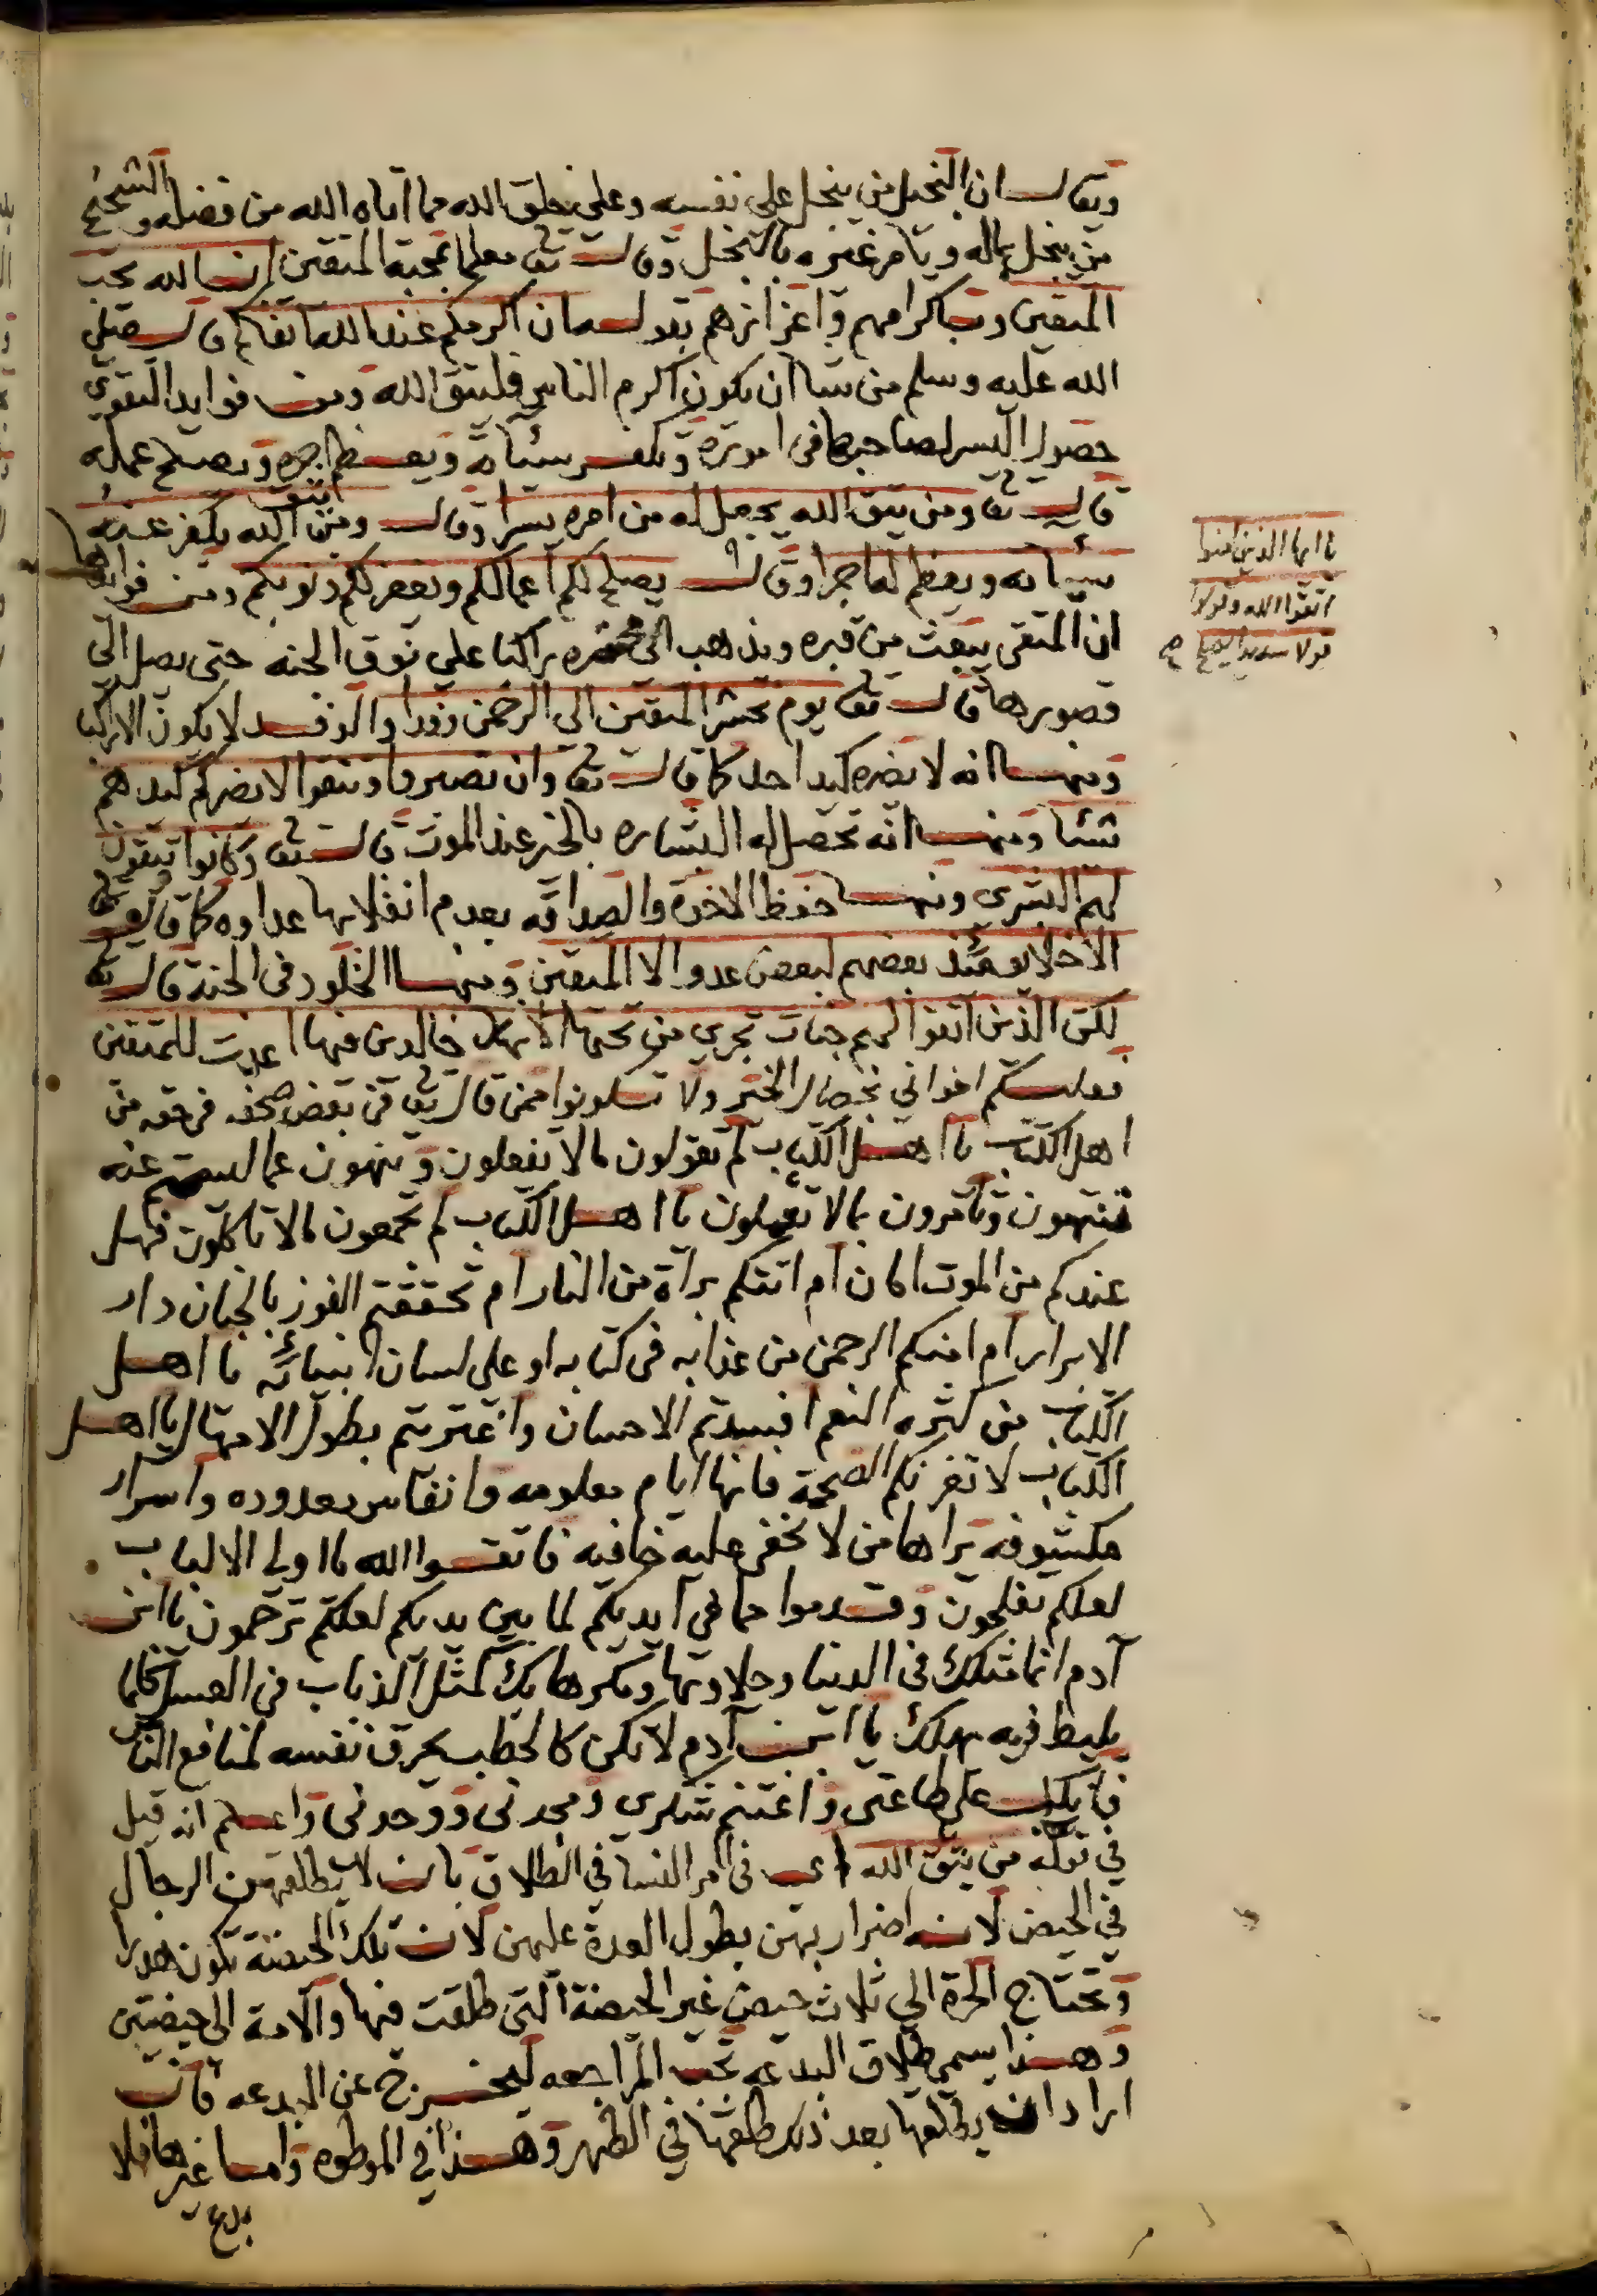 ويقال ان البخيل من يبخل على نفسه وعلى خلق الله مما اتاه الله من فضله والشحيح
من يبخل بماله ويامر غيره بالبخل وقال تعالى معلما بمحبة المتقين ان الله يحب
المتقين وباكرامهم واعزازهم بقوله ان اكرمكم عند الله اتقاكم قال صلى
الله عليه وسلم من شا ان يكون اكرم الناس فليتق الله ومن فوايد التقوى
حصول اليسر لصاحبها في اموره وتكفير سيئاته ويعظم اجره ويصلح عمله
قال تعالى ومن يتق الله يجعل له من امره يسرا وقال ومن يتق الله يكفر عنه
سيئاته ويعظم له اجرا وقال يصلح لكم اعمالكم ويغفر لكم ذنوبكم ومن فوايدها
ان المتقي يبعث من قبره ويذهب الى محشره راكبا على نوق الجنه حتى يصل الى
قصورها قال تعالى يوم نحشر المتقين الى الرحمن وفدا والوفد لا يكون الا راكبا
ومنها انه لا يضره كيد احد كما قال تعالى وان تصبروا وتتقوا لا يضركم كيدهم
شيئا ومنها انه تحصل له البشاره بالخير عند الموت قال تعالى وكانوا يتقون
لهم البشرى ومنها حفظ الاخوة والصداقه بعدم انقلابها عداوه كما قال تعالى
الاخلا يومئذ بعضهم لبعض عدو الا المتقين ومنها الخلود في الجنة قال تعالى
لكن الذين اتقوا ربهم جنات تجري من تحتها الانهار خالدين فيها اعدت للمتقين
فعليكم اخواني بخصال الخير ولا تكونوا ممن قال تعالى في بعض صحفه في حقه من
اهل الكتب يا اهل الكتاب لم تقولون ما لا تفعلون وتنهون عما لستم عنه
تنتهون وتامرون بما لا تعملون يا اهل الكتاب لم تجمعون ما لا تاكلون فهل
عندكم من الموت امان ام اتتكم براة من النار ام تحققتم الفوز بالجنان دار
الابرار ام امنكم الرحمن من عذابه في كتابه او على لسان انبيائه يا اهل
الكتاب من كثره النعم افسدتم الاحسان واغتررتم بطول الامهال يا اهل
الكتاب لا تغرنكم الصحة فانها ايام معلومه وانفاس معدوده واسرار
مكشوفه يراها من لا تخفى عليه خافيه فاتقوا الله يا اولي الالباب
لعلكم تفلحون وقدموا مما في ايديكم لما بين يديكم لعلكم ترحمون يا ابن
آدم انما مثلك في الدنيا وحلاوتها ومكرها بك كمثل الذباب في العسل كلما
يلبط فيه يهلك يا ابن آدم لا تكن كالحطب يحرق نفسه لمنافع الناس
فانكب على طاعتي واغتنم شكري ومجدني ووحدني واعلم انه قيل
في قوله من يتق الله اي في امر النسا في الطلاق بان لا يطلقهن الرجال
في الحيض لانه اضرار بهن بطول العدة عليهن لان تلك الحيضة تكون هدرا
وتحتاج الحرة الى ثلاث حيض غير الحيضة التي طلقت فيها والامة الى حيضتين
وهذا يسمى طلاق البدعه تجب المراجعه ليخرج عن البدعه فان
اراد ان يطلقها بعد ذلك طلقها في الطهر وهذا في الموطوه واما غيرها فلا
بدع
يا ايها الذين امنوا
اتقوا الله وقولوا
قولا سديدا يصلح صح